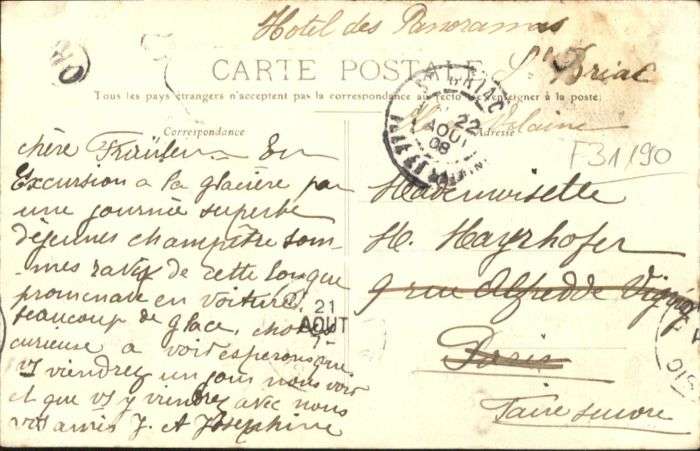 Hotel des Panoramas
St Briac
CARTE POSTALE
Tous les pays étrangers n'acceptent pas la correspondance au recto (se renseigner à la poste)
Vilaine
Correspondance
Adresse
ST BRIAC
22
AOUT
08
21
AOUT
F31/90
chère Fräulein En
Excursion a la glacière par
une journée superbe
déjeuner champêtre som-
mes ravies de cette longue
promenade en voiture
beaucoup de glace, chose
curieuse a voir esperons que
vs viendrez un jour nous voir
et que vs y viendrez avec nous
vos amis J. A Josephine
Mademoiselle
H. Hayrhofer
9 rue Alfred de Vigny
Paris
Faire suivre